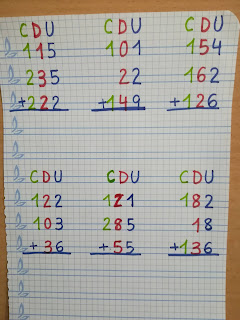 CDU CDU CDU
115 101 154
235 22 162
+222 +149 +126
CDU CDU CDU
122 121 182
103 285 18
+36 +55 +136